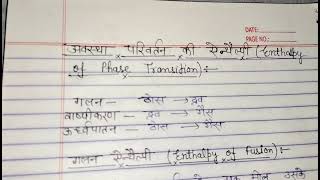 DATE:
PAGE NO.:
अवस्था परिवर्तन की ऐन्थैल्पी (Enthalpy
of Phase Transition):-
गलन — ठोस → द्रव
वाष्पीकरण — द्रव → गैस
ऊर्ध्वपातन — ठोस → गैस
गलन ऐन्थैल्पी (Enthalpy of Fusion):-